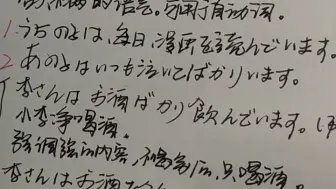 的语气。可用于有动词。
1. うちのとは、毎日、漫画を読んでいます。
2. あのとはいつも泣いてばかりいます。
李さんはお酒ばかり飲んでいます。
小李净喝酒。
强调强的内容,不喝别的,只喝酒
李さんはお酒